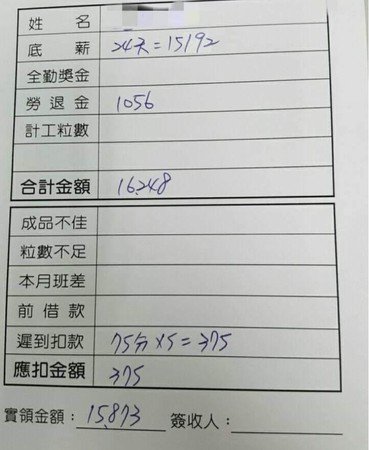 姓名
底薪 24天=15192
全勤獎金
勞退金 1056
計工粒數
合計金額 16,248
成品不佳
粒數不足
本月班差
前借款
遲到扣款 75分×5=375
應扣金額 375
實領金額：15,873 簽收人：